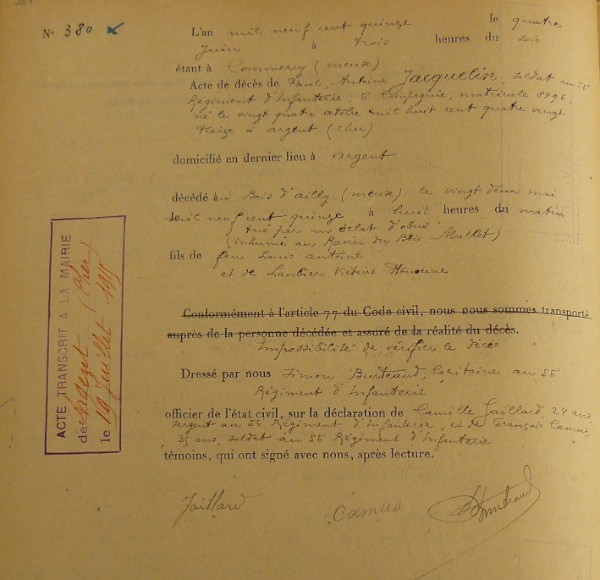 N° 380
L'an mil neuf cent quinze le quatre
Juin à trois heures du soir
étant à Commercy (Meuse)
Acte de décès de Paul, Antoine Jacquelin, soldat au 56e
Régiment d'Infanterie, 6e Compagnie, matricule 8996
né le vingt quatre octobre mil huit cent quatre vingt
treize à argent (Cher)
domicilié en dernier lieu à argent
décédé au Bois d'ailly (Meuse) le vingt deux mai
mil neuf cent quinze à huit heures du matin
tué par un éclat d'obus
(inhumé au Ravin du Bois Mullot)
fils de feu Louis antoine
et de Lautier Victoire Honorine
Conformément à l'article 77 du Code civil, nous nous sommes transporté
auprès de la personne décédée et assuré de la réalité du décès.
Impossibilité de vérifier le décès
Dressé par nous Simon Burteaud, Capitaine au 56e
Régiment d'Infanterie
officier de l'état civil, sur la déclaration de Camille Jaillard, 24 ans,
sergent au 56e Régiment d'Infanterie, et de François Camus,
35 ans, soldat au 56e Régiment d'Infanterie
témoins, qui ont signé avec nous, après lecture.
Jaillard Camus
ACTE TRANSCRIT A LA MAIRIE
de Argent (Cher)
le 19 juillet 1915